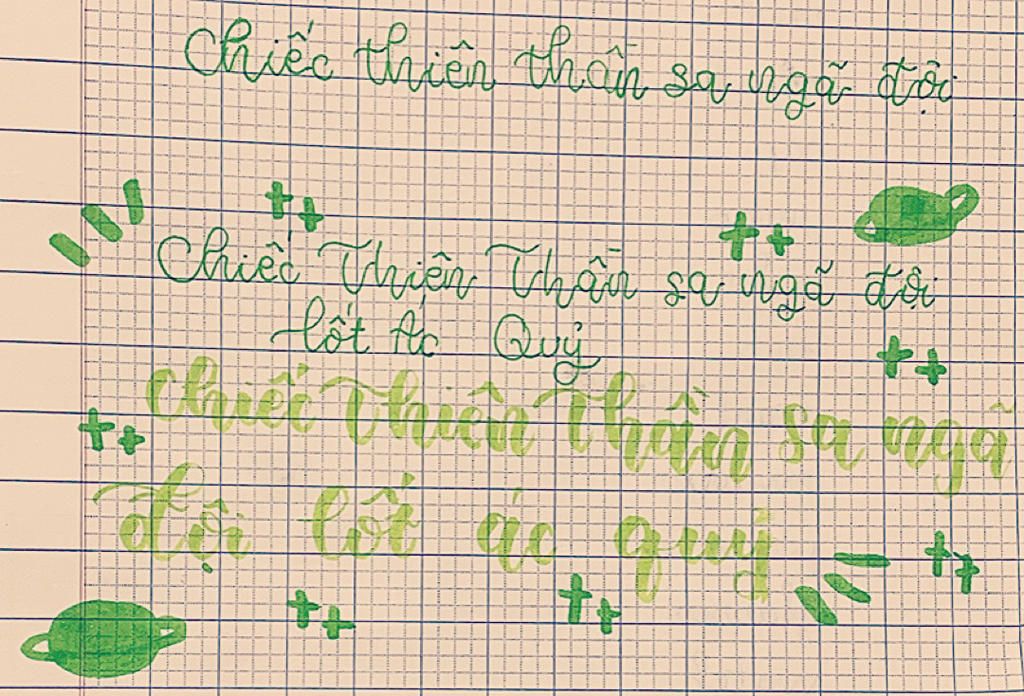 Chiếc thiên thần sa ngã đội
Chiếc Thiên Thần sa ngã đội
lốt Ác Quỷ
Chiếc Thiên Thần sa ngã
đội lốt ác quỷ